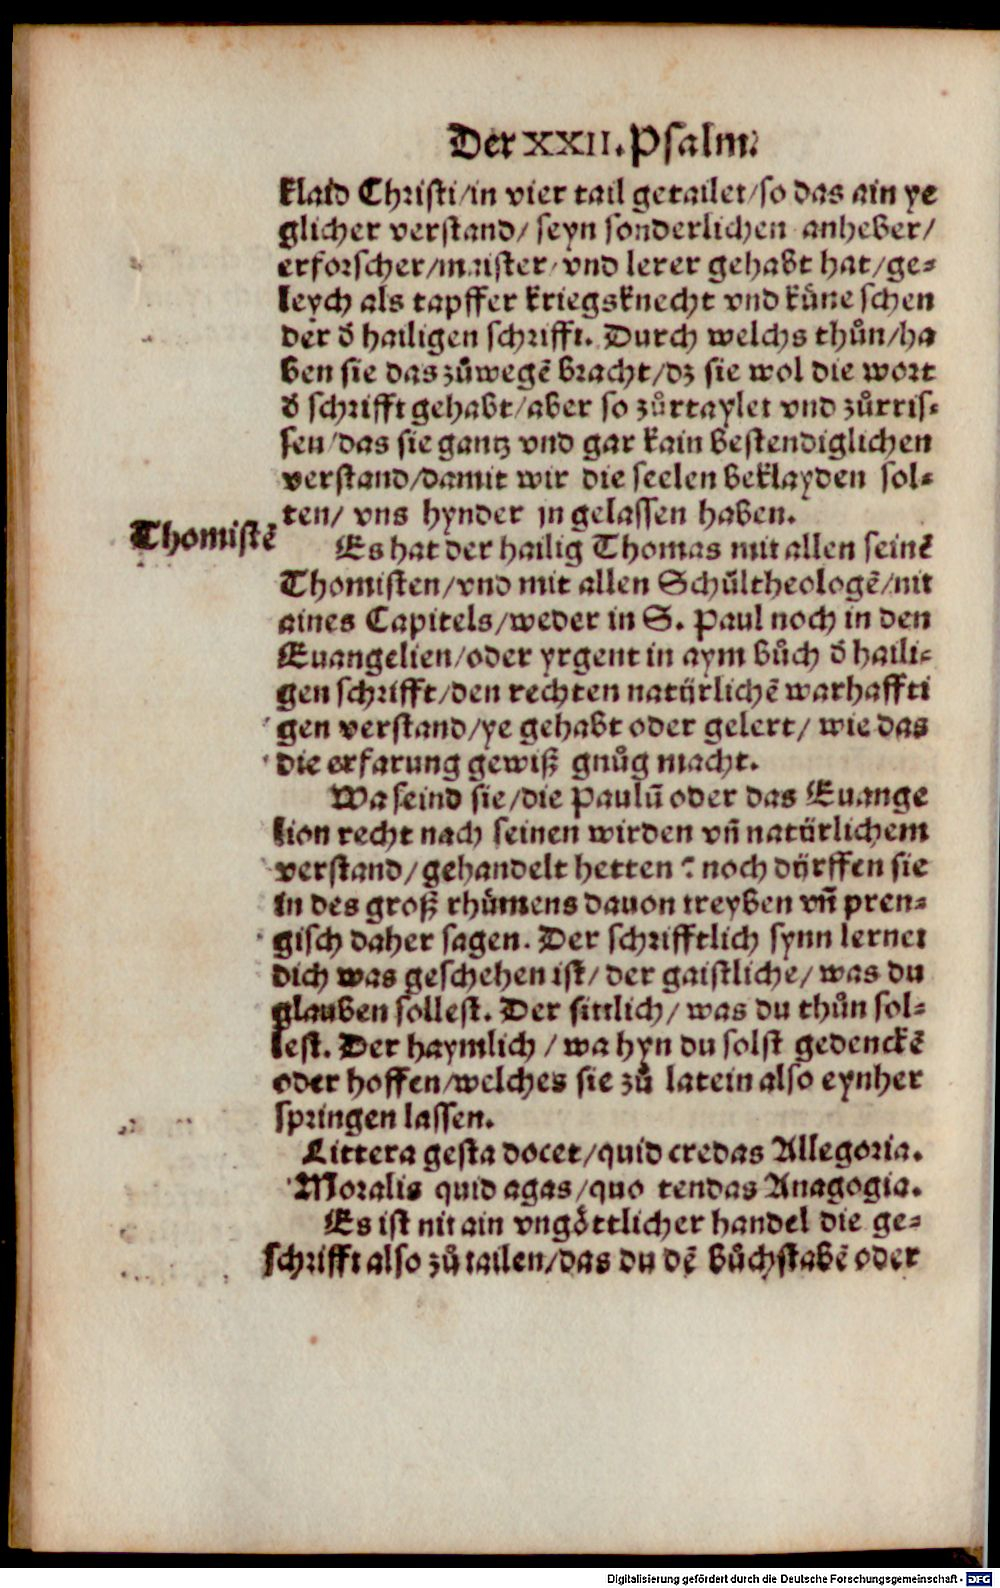 Der XXII. Psalm.
klaid Christi/in vier tail getailet/so das ain ye
glicher verstand/ seyn sonderlichen anheber/
erforscher/maister/vnd lerer gehabt hat/ge⸗
leych als tapffer kriegsknecht vnd kůne schen
der ð hailigen schrifft. Durch welchs thůn/ha
ben sie das zůwegẽ bracht/dz sie wol die wort
ð schrifft gehabt/aber so zůrtaylet vnd zůrris⸗
sen/das sie gantz vnd gar kain bestendiglichen
verstand/damit wir die seelen beklayden sol⸗
ten/ vns hynder jn gelassen haben.
Thomistẽ
Es hat der hailig Thomas mit allen seinẽ
Thomisten/vnd mit allen Schůltheologẽ/nit
aines Capitels/weder in S. Paul noch in den
Euangelien/oder yrgent in aym bůch ð haili⸗
gen schrifft/den rechten natürlichẽ warhaffti
gen verstand/ye gehabt oder gelert/ wie das
die erfarung gewiß gnůg macht.
Wa seind sie/die Paulũ oder das Euange
lion recht nach seinen wirden vñ natürlichem
verstand/gehandelt hetten? noch dÿrffen sie
in des groß rhůmens dauon treyben vñ pren⸗
gisch daher sagen. Der schrifftlich synn lernet
dich was geschehen ist/ der gaistliche/ was du
glauben sollest. Der sittlich/ was du thůn sol⸗
lest. Der haymlich / wa hyn du solst gedenckẽ
oder hoffen/welches sie zů latein also eynher
springen lassen.
Littera gesta docet/quid credas Allegoria.
Moralis quid agas/quo tendas Anagogia.
Es ist nit ain vngöttlicher handel die ge⸗
schrifft also zů tailen/das du dẽ bůchstabẽ oder
Digitalisierung gefördert durch die Deutsche Forschungsgemeinschaft - DFG